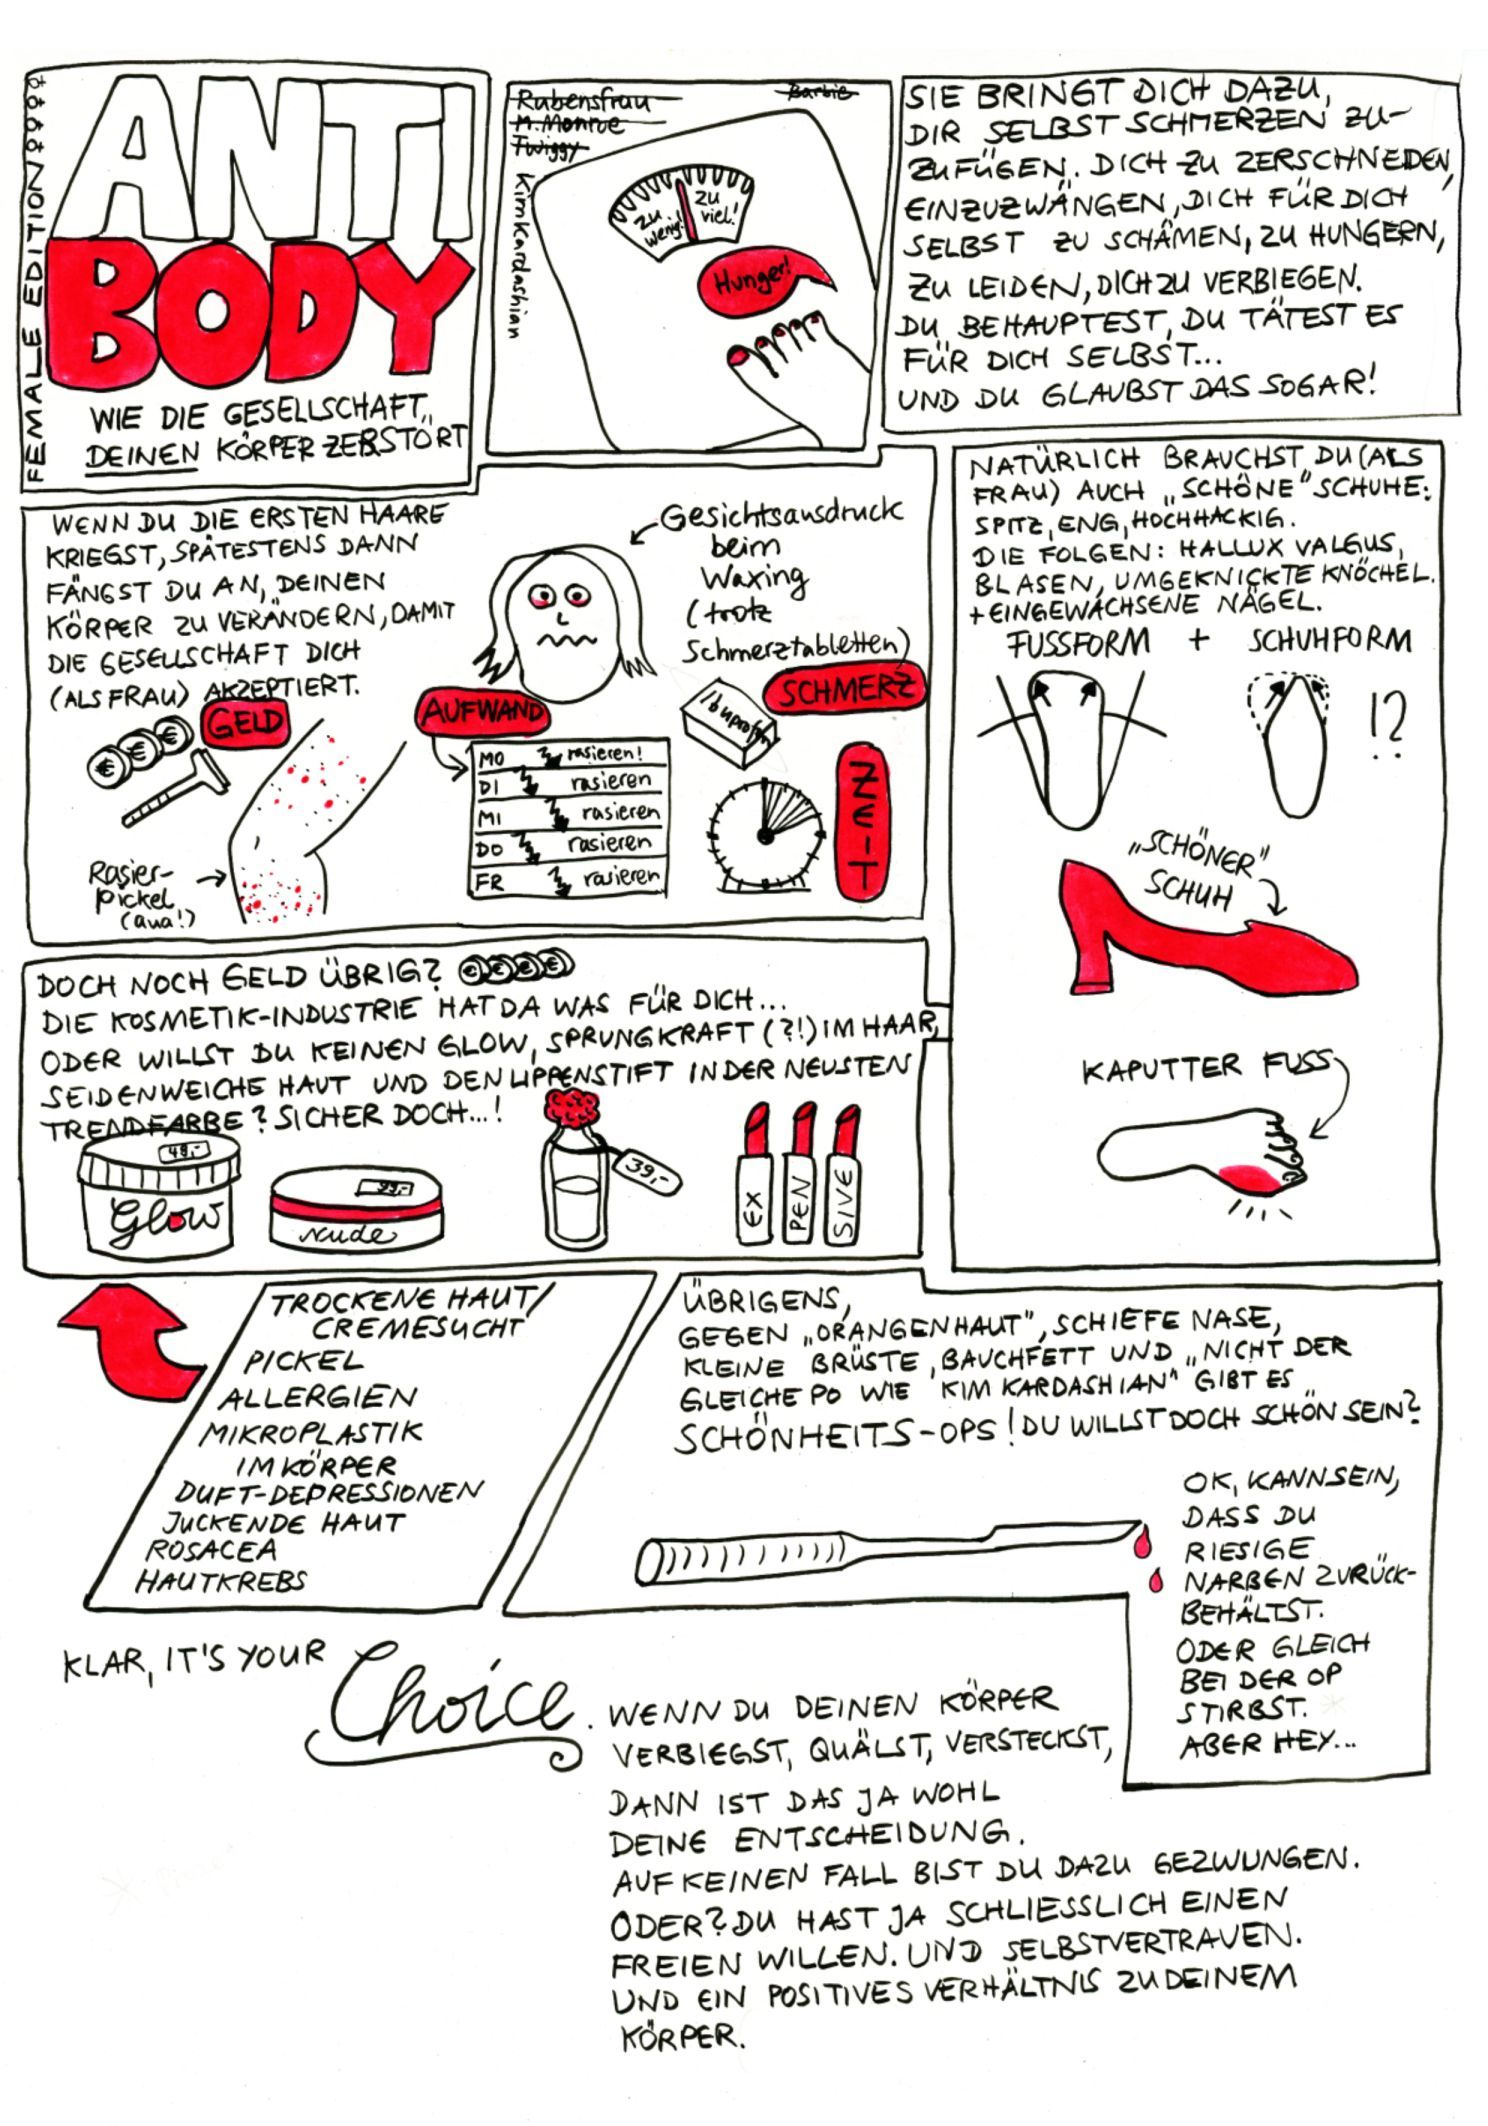 FEMALE EDITION ♀♀♀♀
ANTI
BODY
WIE DIE GESELLSCHAFT
DEINEN KÖRPER ZERSTÖRT
Rubensfrau
M. Monroe
Twiggy
Kim Kardashian
Barbie
zu wenig!
zu viel!
Hunger!
SIE BRINGT DICH DAZU,
DIR SELBST SCHMERZEN ZU-
ZUFÜGEN. DICH ZU ZERSCHNEIDEN,
EINZUZWÄNGEN, DICH FÜR DICH
SELBST ZU SCHÄMEN, ZU HUNGERN,
ZU LEIDEN, DICH ZU VERBIEGEN.
DU BEHAUPTEST, DU TÄTEST ES
FÜR DICH SELBST...
UND DU GLAUBST DAS SOGAR!
WENN DU DIE ERSTEN HAARE
KRIEGST, SPÄTESTENS DANN
FÄNGST DU AN, DEINEN
KÖRPER ZU VERÄNDERN, DAMIT
DIE GESELLSCHAFT DICH
(ALS FRAU) AKZEPTIERT.
Gesichtsausdruck
beim
Waxing
(trotz
Schmerztabletten)
GELD
€ € €
Rasier-
pickel
(aua!)
AUFWAND
MO rasieren!
DI rasieren
MI rasieren
DO rasieren
FR rasieren
SCHMERZ
Ibuprofen
ZEIT
NATÜRLICH BRAUCHST DU (ALS
FRAU) AUCH „SCHÖNE" SCHUHE:
SPITZ, ENG, HOCHHACKIG.
DIE FOLGEN: HALLUX VALGUS,
BLASEN, UMGEKNICKTE KNÖCHEL.
+ EINGEWACHSENE NÄGEL.
FUSSFORM + SCHUHFORM
!?
„SCHÖNER"
SCHUH
KAPUTTER FUSS
DOCH NOCH GELD ÜBRIG? €€€€
DIE KOSMETIK-INDUSTRIE HAT DA WAS FÜR DICH...
ODER WILLST DU KEINEN GLOW, SPRUNGKRAFT (?!) IM HAAR,
SEIDENWEICHE HAUT UND DEN LIPPENSTIFT IN DER NEUSTEN
TRENDFARBE? SICHER DOCH...!
49,-
Glow
99,-
Nude
39,-
EX
PEN
SIVE
TROCKENE HAUT/
CREMESUCHT
PICKEL
ALLERGIEN
MIKROPLASTIK
IM KÖRPER
DUFT-DEPRESSIONEN
JUCKENDE HAUT
ROSACEA
HAUTKREBS
ÜBRIGENS,
GEGEN „ORANGENHAUT", SCHIEFE NASE,
KLEINE BRÜSTE, BAUCHFETT UND „NICHT DER
GLEICHE PO WIE KIM KARDASHIAN" GIBT ES
SCHÖNHEITS-OPS! DU WILLST DOCH SCHÖN SEIN?
OK, KANN SEIN,
DASS DU
RIESIGE
NARBEN ZURÜCK-
BEHÄLTST.
ODER GLEICH
BEI DER OP
STIRBST.
ABER HEY...
KLAR, IT'S YOUR
Choice.
WENN DU DEINEN KÖRPER
VERBIEGST, QUÄLST, VERSTECKST,
DANN IST DAS JA WOHL
DEINE ENTSCHEIDUNG.
AUF KEINEN FALL BIST DU DAZU GEZWUNGEN.
ODER? DU HAST JA SCHLIESSLICH EINEN
FREIEN WILLEN. UND SELBSTVERTRAUEN.
UND EIN POSITIVES VERHÄLTNIS ZU DEINEM
KÖRPER.